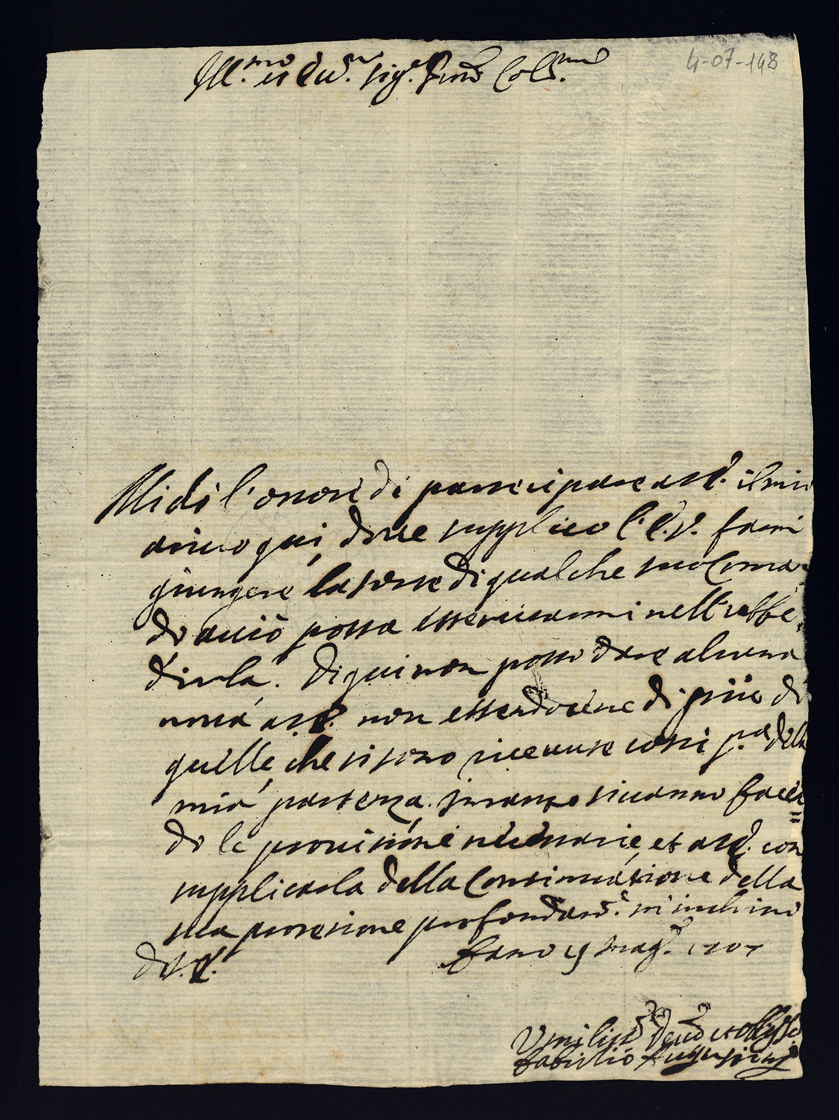 4-07-148
Ill.mo et Ecc.mo Sig.r Pron Col.mo
Mi dò l'onore di partecipare a V.E. il mio
arrivo qui, dove supplico l'E.V. farmi
giungere la sorte di qualche suo Coman
do acciò possa essercitarmi nell'ubbe
dirla. Di qui non posso dare alcuna
novità a V.E. non essendovene di più di
quelle, che si sono ricevute costì p.a della
mia partenza. Intanto si vanno facen=
do le provisioni necessarie et a V.E. con
supplicarla della Continuatione della
sua protetione profondam.e m'inchino
Di V.E.
Fano 19 Mag.o 1707
Umiliss.o Dev.o et Obblig.o